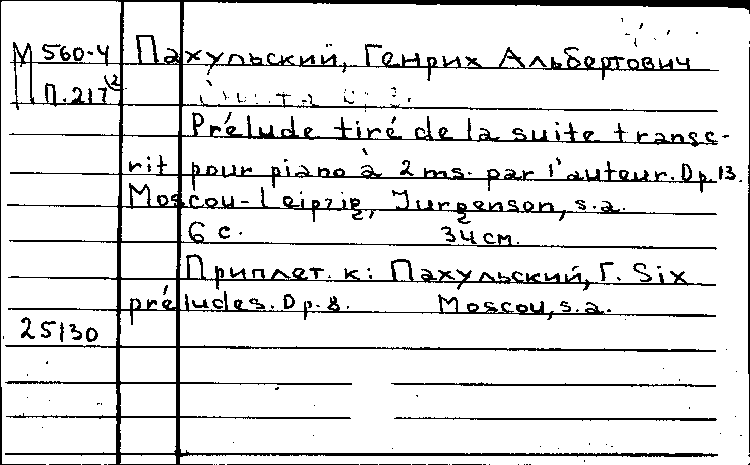 М 560-4 Пахульский, Генрих Альбертович
П.217
Prélude tiré de la suite transc-
rit pour piano à 2 ms. par l'auteur. Op. 13.
Moscou-Leipzig, Jurgenson, s.a.
6 с. 34 см.
Приплет. к: Пахульский, Г. Six
préludes. Op. 8. Moscou, s.a.
25130